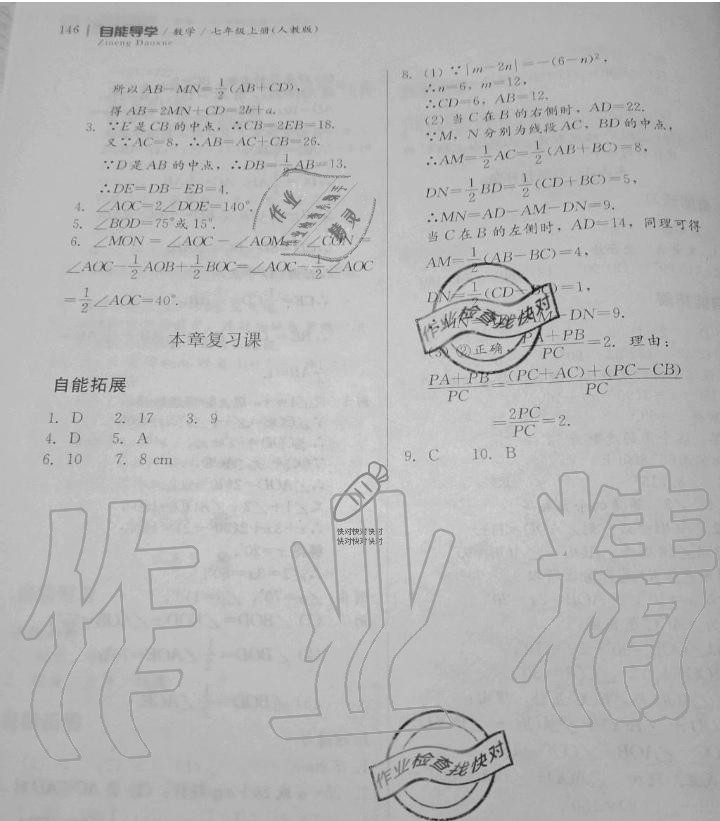 146 自能导学 / 数学 / 七年级上册(人教版)
Zineng Daoxue
所以 AB-MN=1/2(AB+CD),
得 AB=2MN+CD=2b+a.
3. ∵E 是 CB 的中点,∴CB=2EB=18.
又∵AC=8,∴AB=AC+CB=26.
∵D 是 AB 的中点,∴DB=1/2AB=13.
∴DE=DB-EB=4.
4. ∠AOC=2∠DOE=140°.
5. ∠BOD=75°或 15°.
6. ∠MON=∠AOC-∠AOM-∠CON=
∠AOC-1/2AOB+1/2BOC=∠AOC-1/2∠AOC
=1/2∠AOC=40°.
本章复习课
自能拓展
1. D 2. 17 3. 9
4. D 5. A
6. 10 7. 8 cm
8. (1) ∵|m-2n|=-(6-n)²,
∴n=6, m=12,
∴CD=6, AB=12.
(2) 当 C 在 B 的右侧时, AD=22.
∵M, N 分别为线段 AC, BD 的中点,
∴AM=1/2AC=1/2(AB+BC)=8,
DN=1/2BD=1/2(CD+BC)=5,
∴MN=AD-AM-DN=9.
当 C 在 B 的左侧时, AD=14, 同理可得
AM=1/2(AB-BC)=4,
DN=1/2(CD-BC)=1,
-DN=9.
②正确, PA+PB/PC=2. 理由:
PA+PB/PC=(PC+AC)+(PC-CB)/PC
=2PC/PC=2.
9. C 10. B
作业
作业检查找快对
快对快对快对
快对快对快对
作业精
作业检查找快对